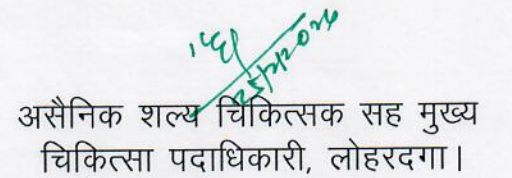 असैनिक शल्य चिकित्सक सह मुख्य
चिकित्सा पदाधिकारी, लोहरदगा।